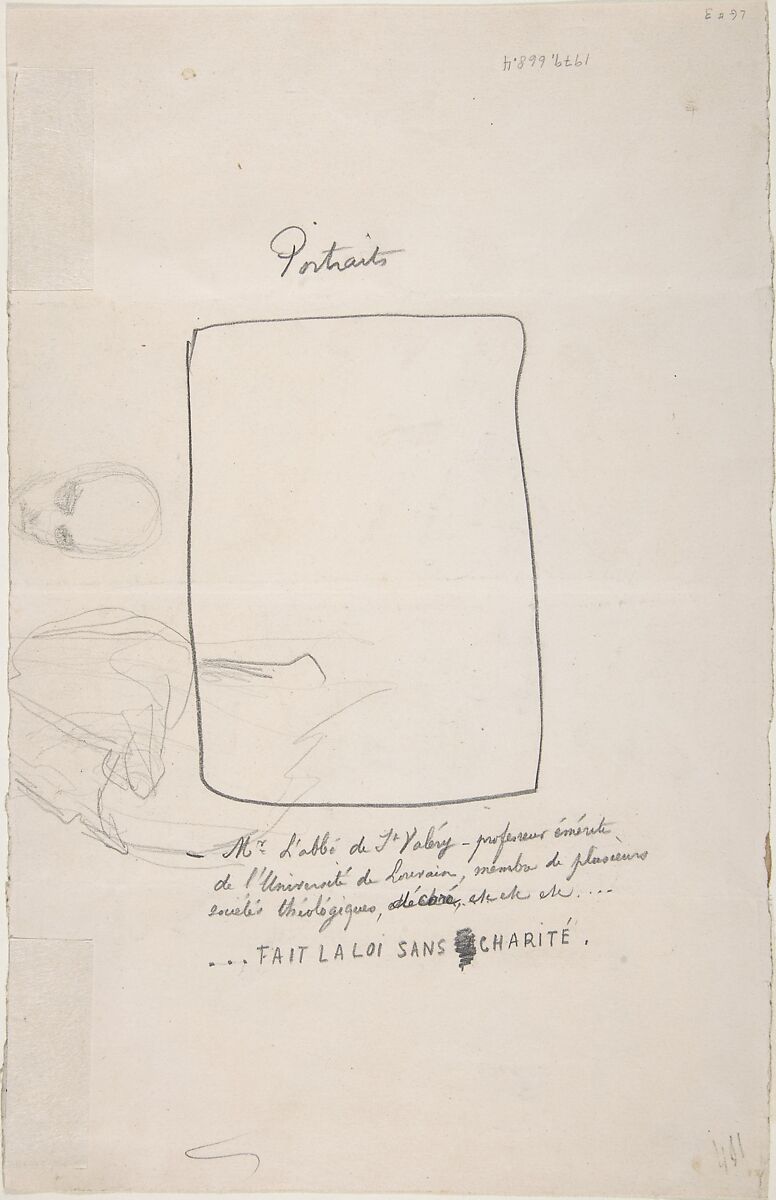 Portraits
— Mr. L'abbé de St Valéry – professeur émérite
de l'Université de Louvain, membre de plusieurs
sociétés théologiques, décoré, etc etc etc....
... FAIT LA LOI SANS CHARITÉ.
1979.668.4